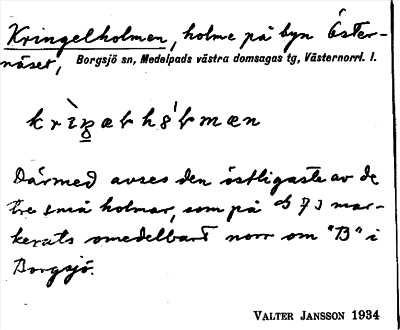 Kringelholmen, holme på byn Öster-
näset, Borgsjö sn, Medelpads västra domsagas tg, Västernorrl. l.
Därmed avses den östligaste av de
tre små holmar, som på 73 mar-
kerats omedelbart norr om "B" i
Borgsjö.
VALTER JANSSON 1934